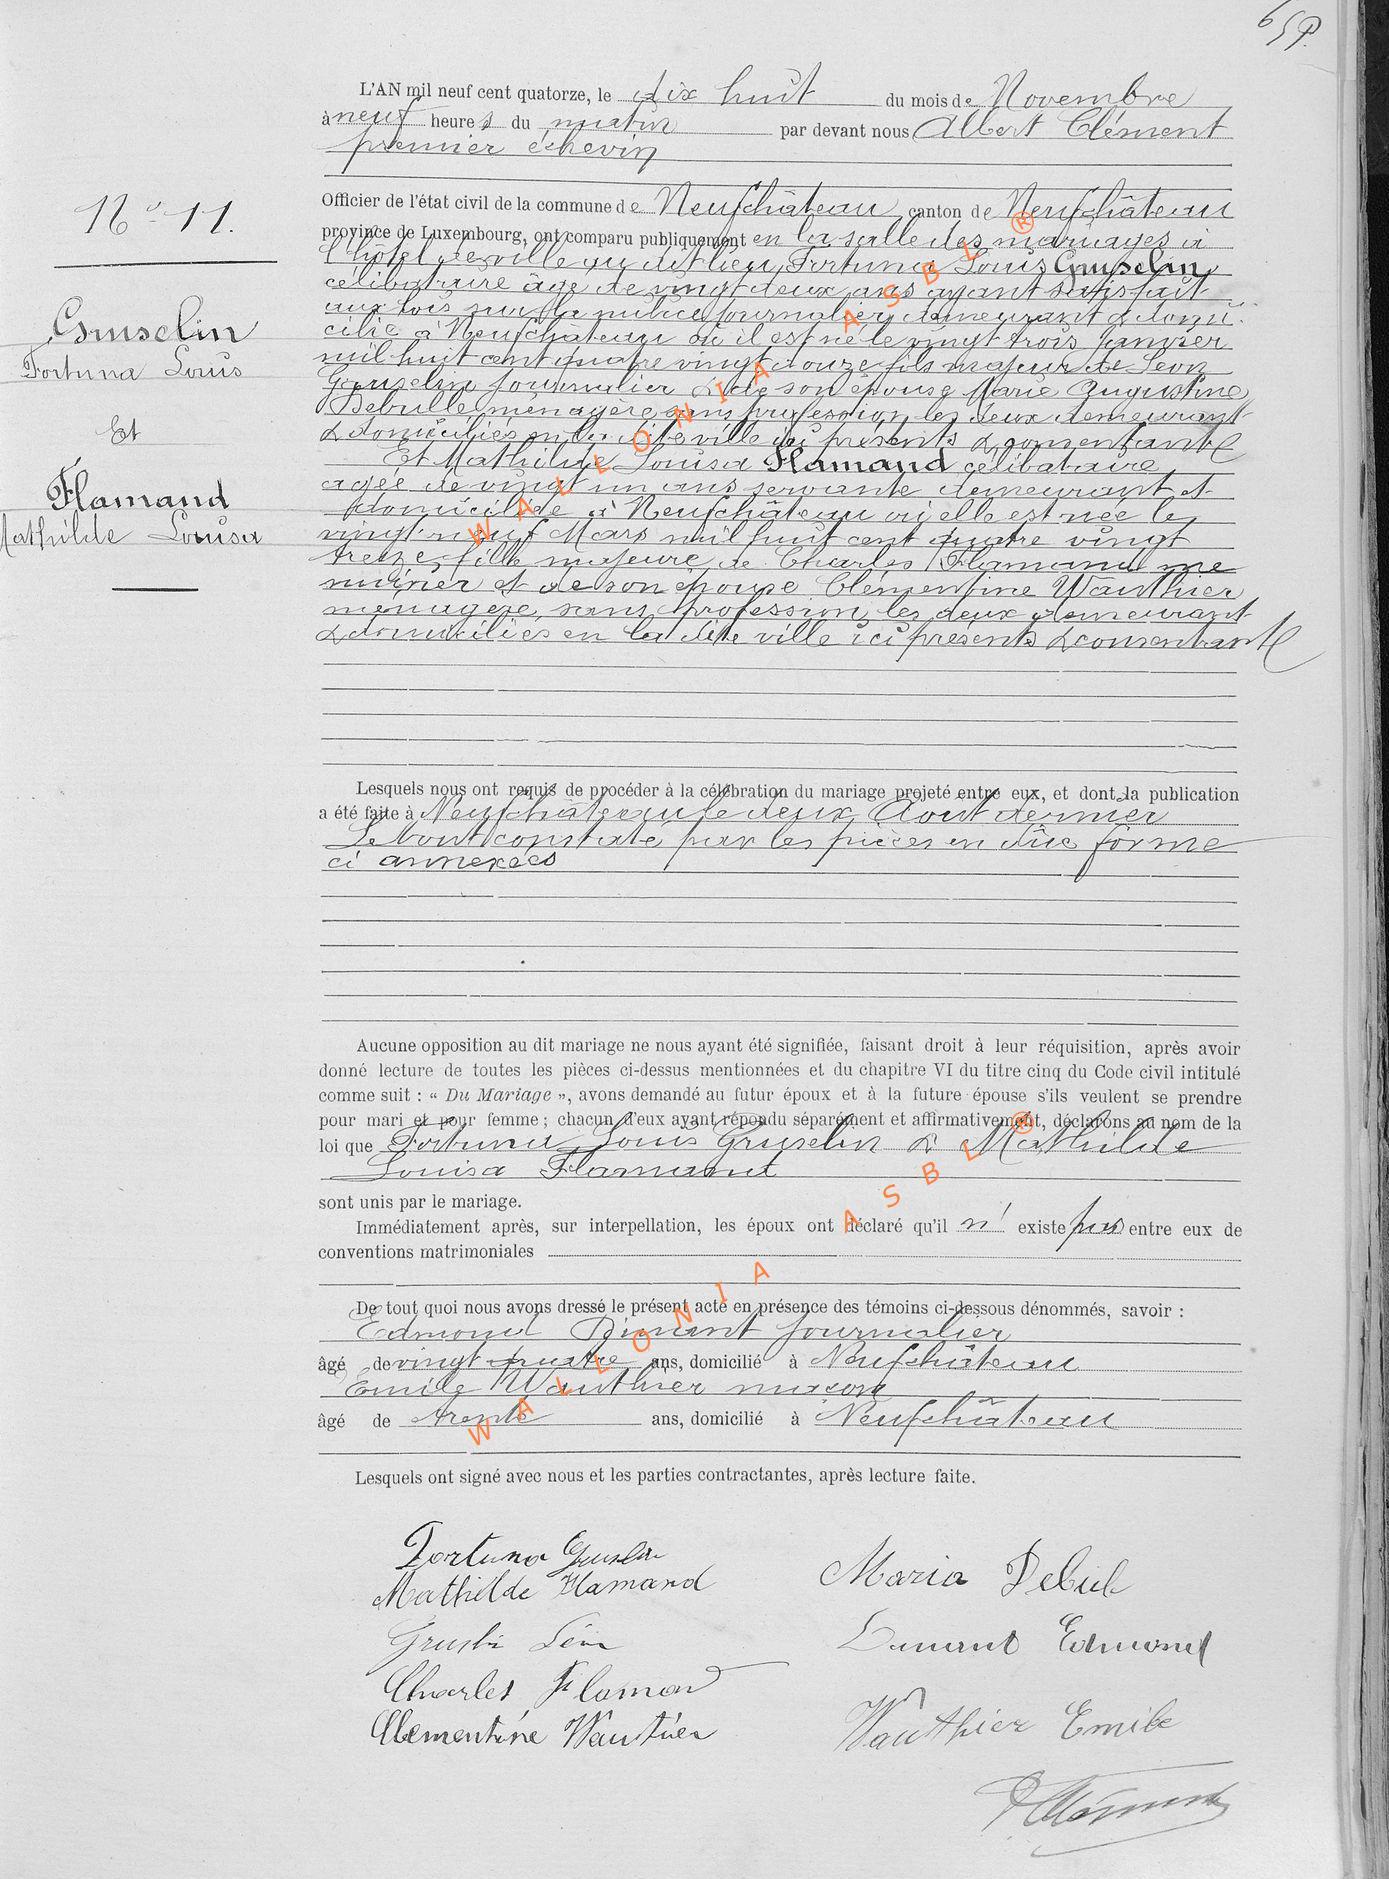 65 P.
L'AN mil neuf cent quatorze, le dix huit du mois de Novembre
à neuf heures du matin par devant nous Albert Clément
premier échevin
Officier de l'état civil de la commune de Neufchâteau canton de Neufchâteau
province de Luxembourg, ont comparu publiquement en la salle des mariages à
l'hôtel de ville au dit lieu, Fortuna Louis Gruselin
célibataire âgé de vingt deux ans ayant satisfait
aux lois sur la milice journalier demeurant & domi-
cilié à Neufchâteau où il est né le vingt trois Janvier
mil huit cent quatre vingt douze fils majeur de Léon
Gruselin journalier & de son épouse Marie Augustine
Debulle ménagère sans profession les deux demeurant
& domiciliés en la dite ville ici présents & consentants
Et Mathilde Louisa Flamand célibataire
agée de vingt un ans servante demeurant et
domiciliée à Neufchâteau où elle est née le
vingt neuf Mars mil huit cent quatre vingt
treize, fille majeure de Charles Flamand me
nuisier et de son épouse Clémentine Wauthier
ménagère sans profession les deux demeurant
& domiciliés en la dite ville ici présents & consentants
N° 11.
Gruselin
Fortuna Louis
Et
Flamand
Mathilde Louisa
Lesquels nous ont requis de procéder à la célébration du mariage projeté entre eux, et dont la publication
a été faite à Neufchâteau le deux Août dernier
Le tout constaté par les pièces en dûe forme
ci annexées
Aucune opposition au dit mariage ne nous ayant été signifiée, faisant droit à leur réquisition, après avoir
donné lecture de toutes les pièces ci-dessus mentionnées et du chapitre VI du titre cinq du Code civil intitulé
comme suit : « Du Mariage », avons demandé au futur époux et à la future épouse s'ils veulent se prendre
pour mari et pour femme ; chacun d'eux ayant répondu séparément et affirmativement, déclarons au nom de la
loi que Fortuna Louis Gruselin & Mathilde
Louisa Flamand
sont unis par le mariage.
Immédiatement après, sur interpellation, les époux ont déclaré qu'il n' existe pas entre eux de
conventions matrimoniales
De tout quoi nous avons dressé le présent acte en présence des témoins ci-dessous dénommés, savoir :
Edmond Dinant journalier
âgé de vingt quatre ans, domicilié à Neufchâteau
Emile Wauthier maçon
âgé de trente ans, domicilié à Neufchâteau
Lesquels ont signé avec nous et les parties contractantes, après lecture faite.
Fortuna Gruselin
Mathilde Flamand
Léon
Charles Flamand
Clementine Wautier
Maria Debul
Dinant Edmond
Wauthier Emile
A Clément
WALLONIA ASBL ®
WALLONIA ASBL ®